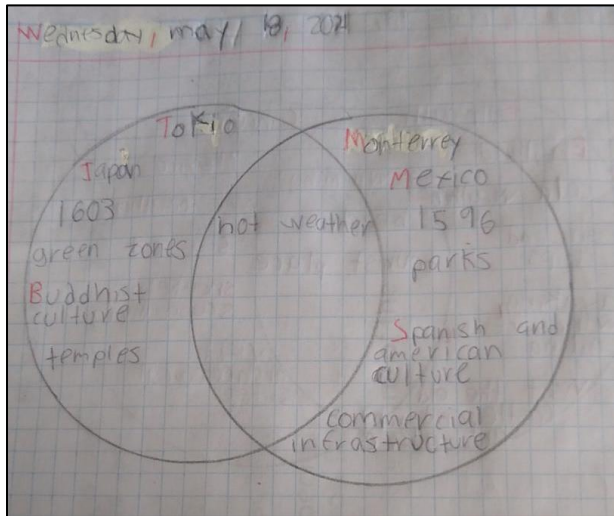 Wednesday, may, 18, 2021
Tokio
Japan
1603
green zones
Buddhist
culture
temples
hot weather
Monterrey
Mexico
1596
parks
Spanish and
american
culture
commercial
infrastructure